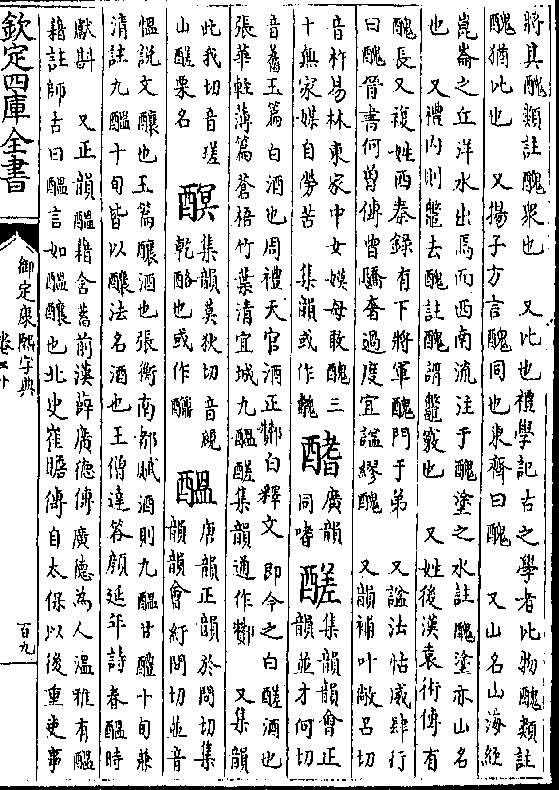 將其醜類註醜衆也　又比也禮學記古之學者比物醜類註
醜猶比也　又揚子方言醜同也東齊曰醜　又山名山海經
崑崙之丘洋水出焉而西南流注于醜塗之水註醜塗亦山名
也　又禮内則鼈去醜註醜謂鼈竅也　又姓後漢袁術傳有
醜長又複姓西秦錄有下將軍醜門于弟　又諡法怙威肆行
曰醜晉書何曽傳曽驕奢過度宜諡繆醜　又韻補叶敞吕切
音杵易林東家中女嫫母敢醜三
十無家媒自勞苦　集韻或作魗
醏
廣韻
同嗜
醝
集韻韻會正
韻並才何切
音蒫玉篇白酒也周禮天官酒正鄭白釋文即今之白醝酒也
張華輕薄篇蒼梧竹葉清宜城九醖醝集韻通作酇　又集韻
此我切音瑳
山醝栗名
醗
集韻莫狄切音覛
乾酪也或作釄
醖
唐韻正韻於問切集
韻韻會紆問切並音
愠說文釀也玉篇釀酒也張衡南都賦酒則九醖甘醴十旬兼
清註九醖十旬皆以釀法名酒也王僧達答顔延年詩春醖時
獻斟　又正韻醖藉含蓄前漢薛廣德傳廣德為人温雅有醖
藉註師古曰醖言如醖釀也北史崔瞻傳自太保以後重吏事
欽定四庫全書
御定康熙字典
卷三十
百九